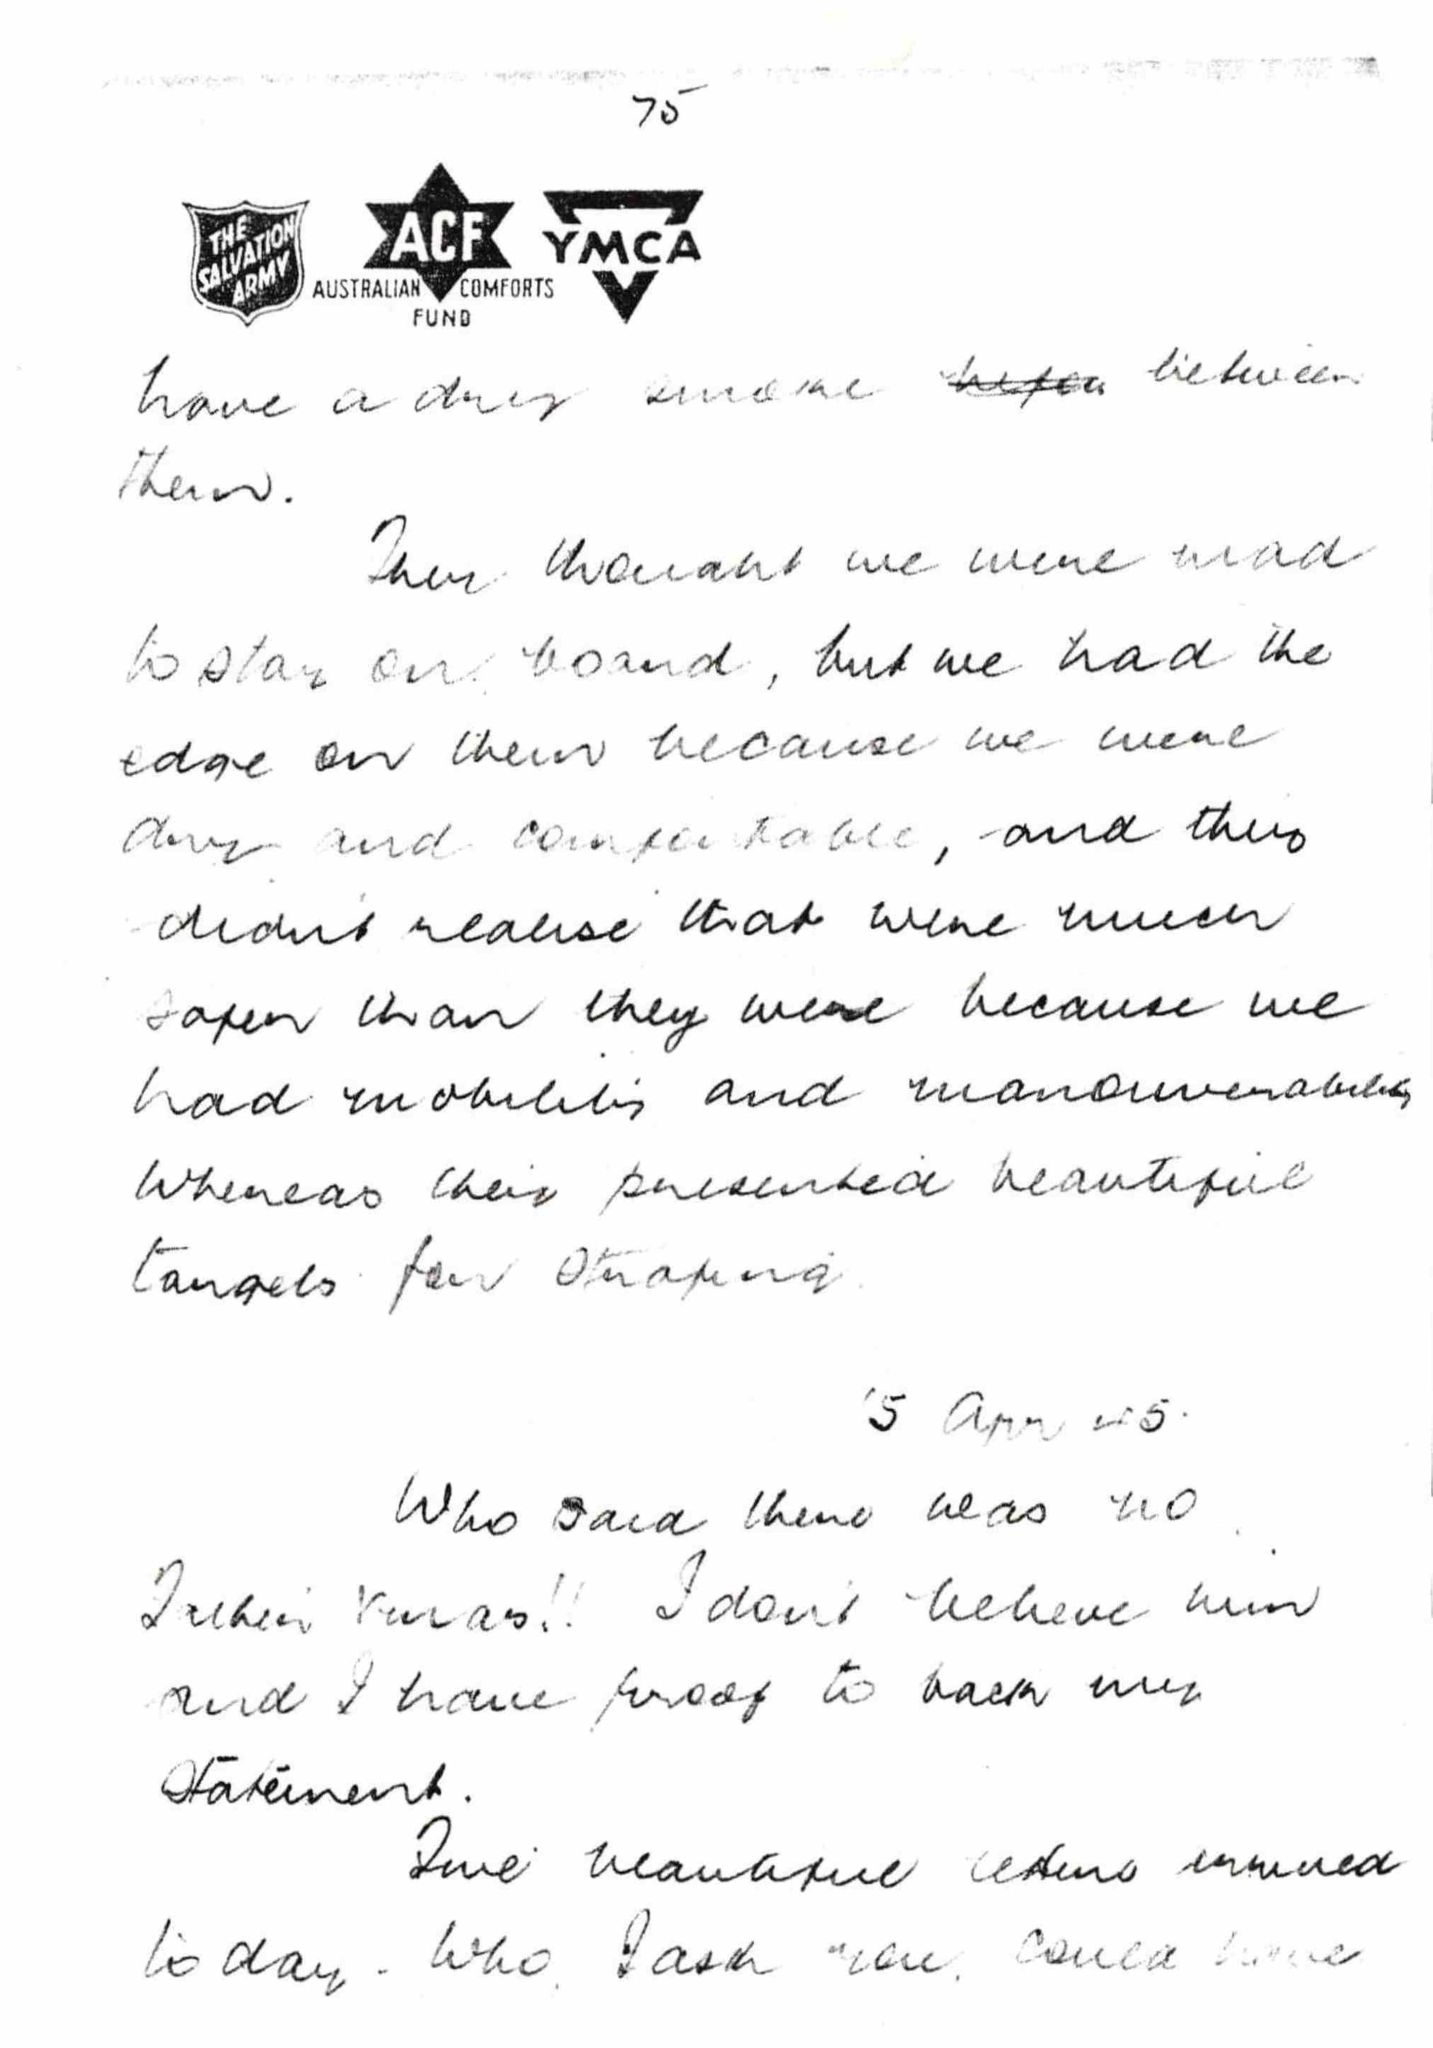 75
THE
SALVATION
ARMY
ACF
AUSTRALIAN COMFORTS
FUND
YMCA
have a dry smoke between
them.
They thought we were mad
to stay on board, but we had the
edge on them because we were
dry and comfortable, and they
didn't realise that were much
safer than they were because we
had mobility and manouverability
whereas they presented beautiful
targets for strafing.
5 Apr 45.
Who said there was no
Father Xmas!! I don't believe him
and I have proof to back my
statement.
Five beautiful letters arrived
today. Who, I ask you, could have